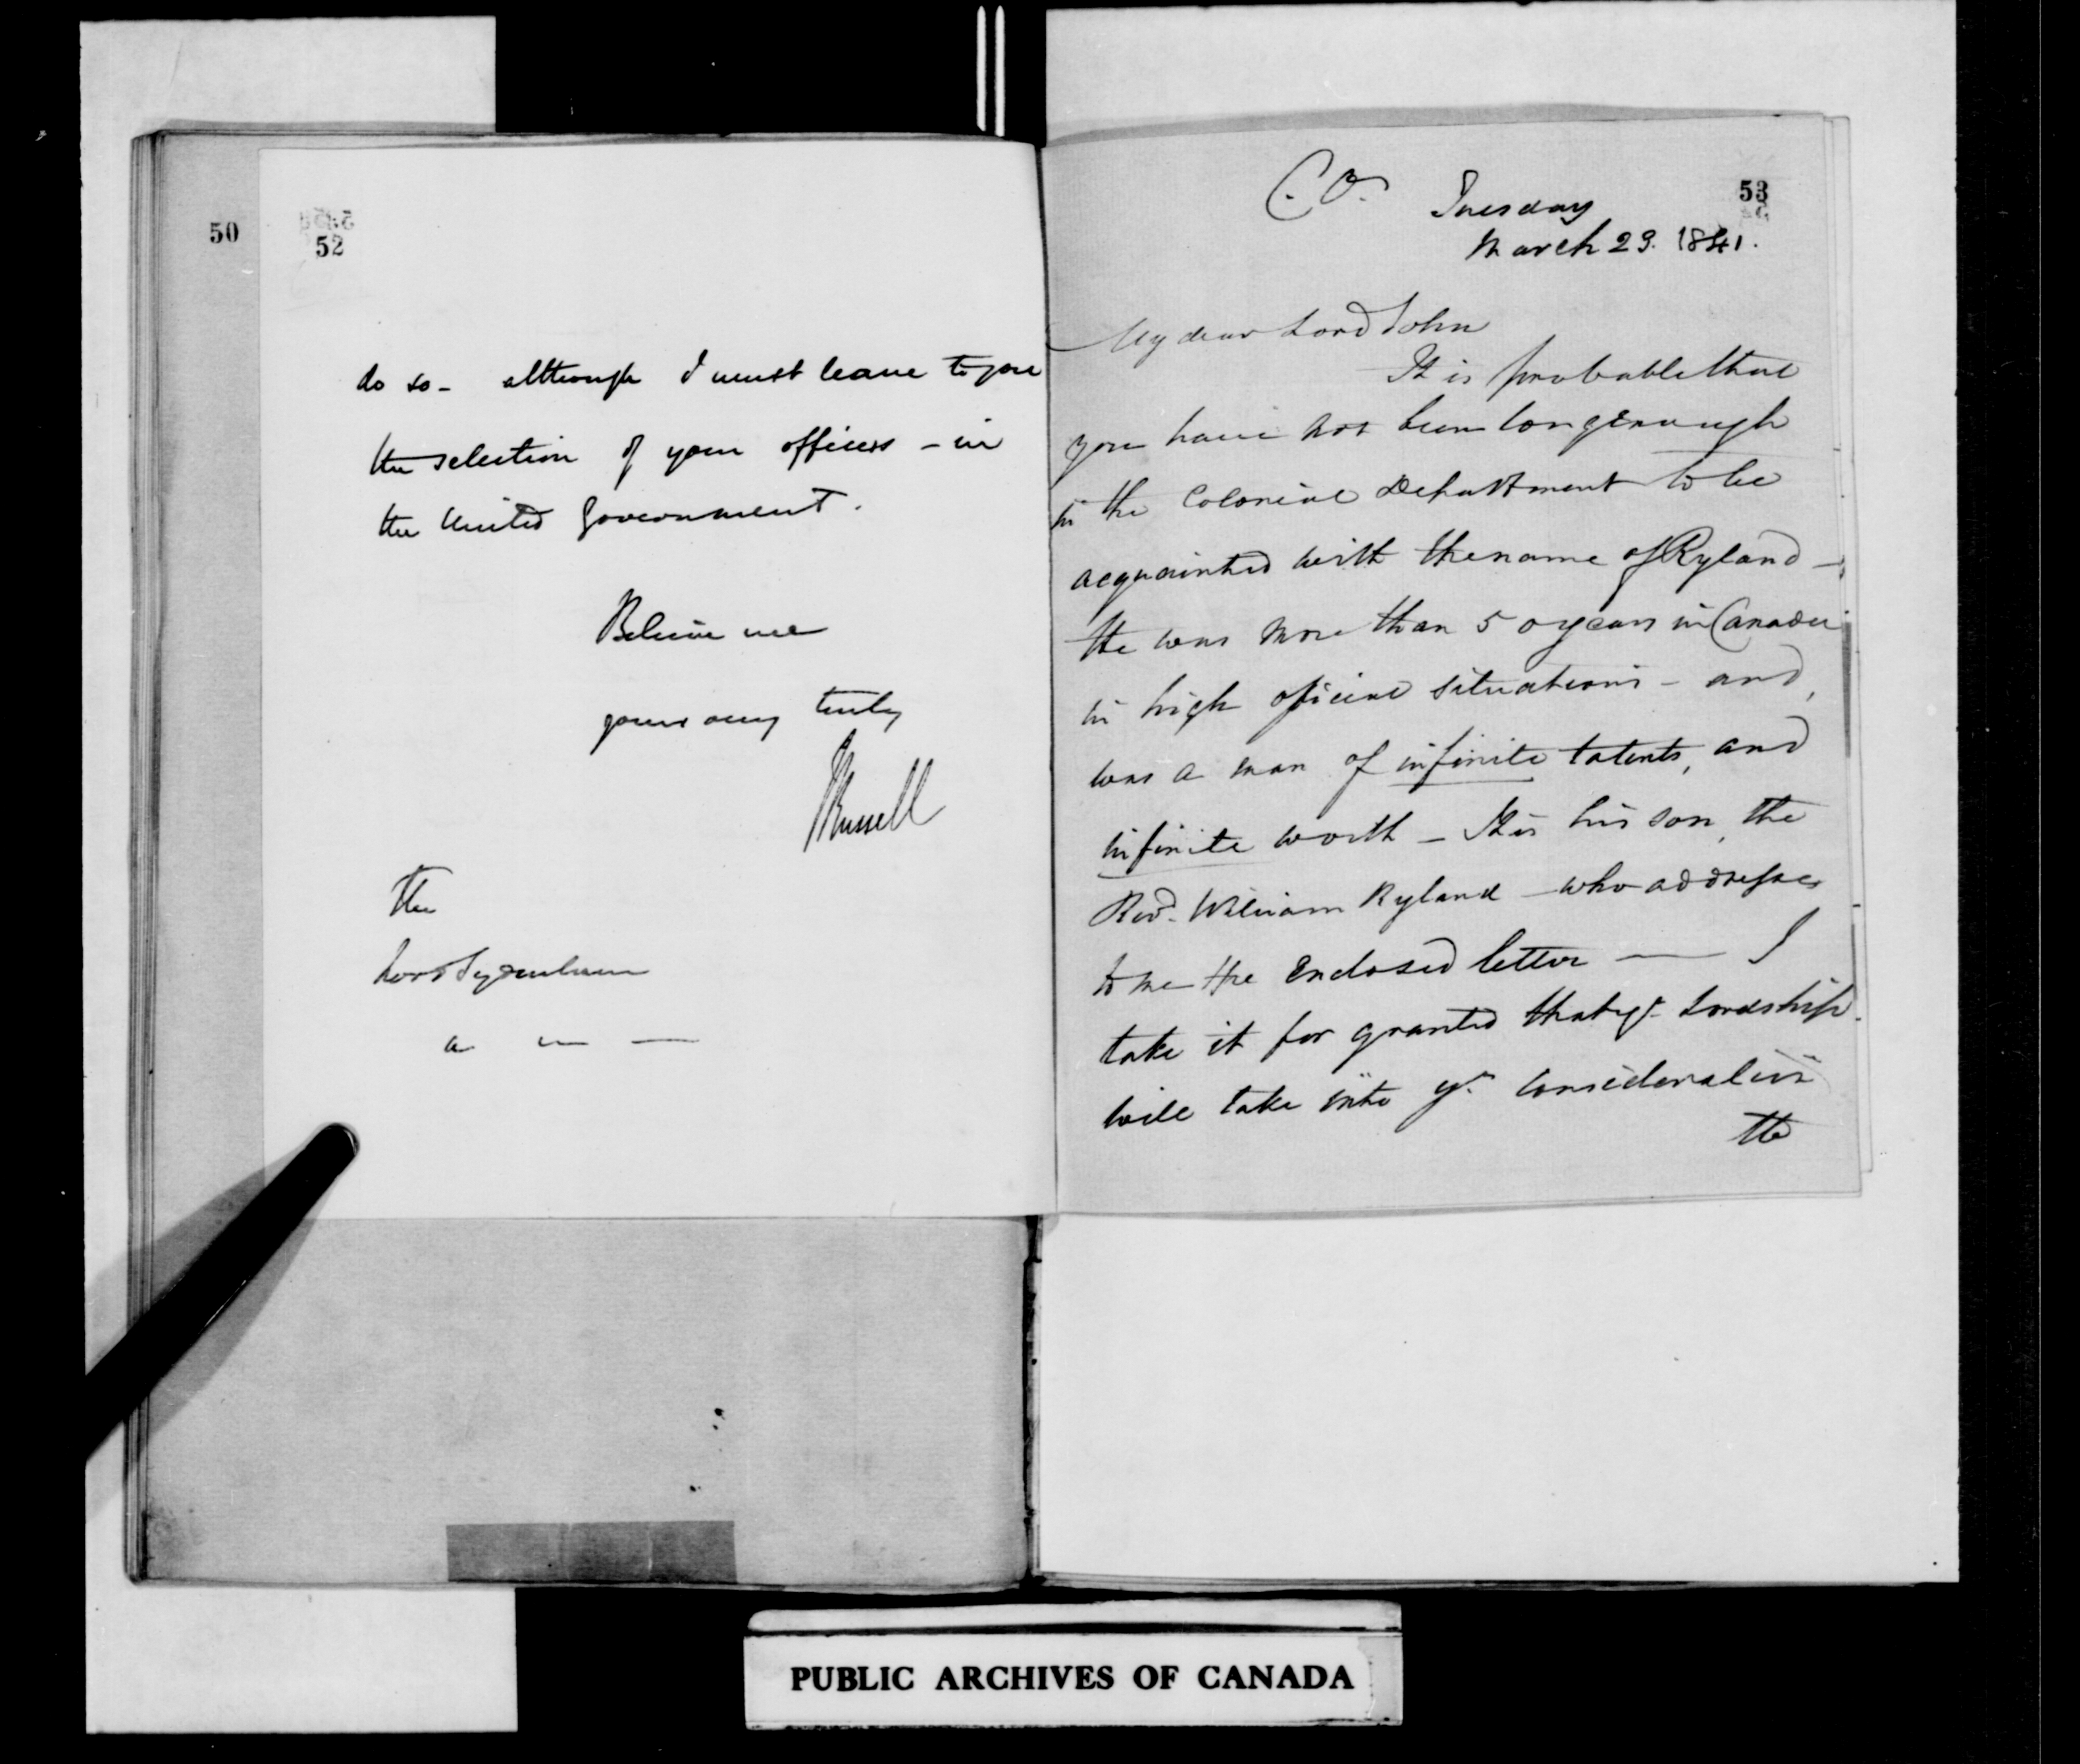 50
52
do so - although I must leave to you
the selection of your officers - in
the United Government.
Believe me
yours very truly
JRussell
The
Lord Sydenham
53
C.O. Tuesday
March 23. 1841.
My dear Lord John
It is probable that
you have not been long enough
in the Colonial Department to be
acquainted with the name of Ryland -
He was more than 50 years in Canada
in high official situations - and,
was a man of infinite talents, and
infinite worth - It is his son, the
Revd. William Ryland - who addresses
to me the enclosed letter — I
take it for granted that yr. Lordship
will take into yr. consideration
the
PUBLIC ARCHIVES OF CANADA